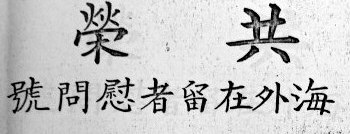 共榮
海外在留者慰問號